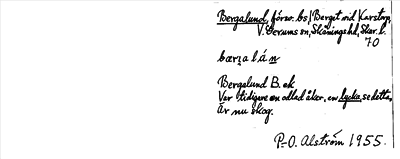 Bergalund, försv. bs/Bergit vid Karstorp,
V. Gerums sn, Skånings hd, Skar. l.
70
bærᴈalán
Bergalund B. ek
Var tidigare en odlad åker, en lycka, se detta,
Är nu skog.
P-O. Alström 1955.